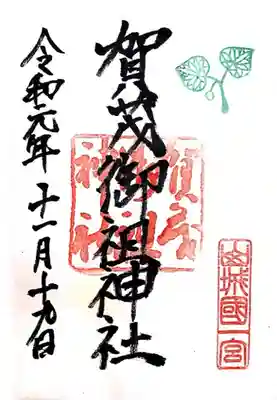 山城國一宮
賀茂御祖神社
賀茂
御祖
神社
令和元年十一月十九日